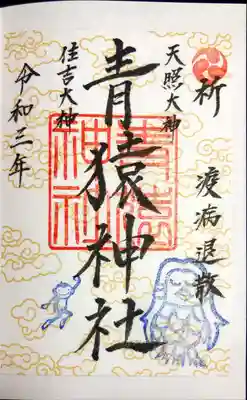 祈 疫病退散
天照大神
青猿神社
住吉大神
令和三年